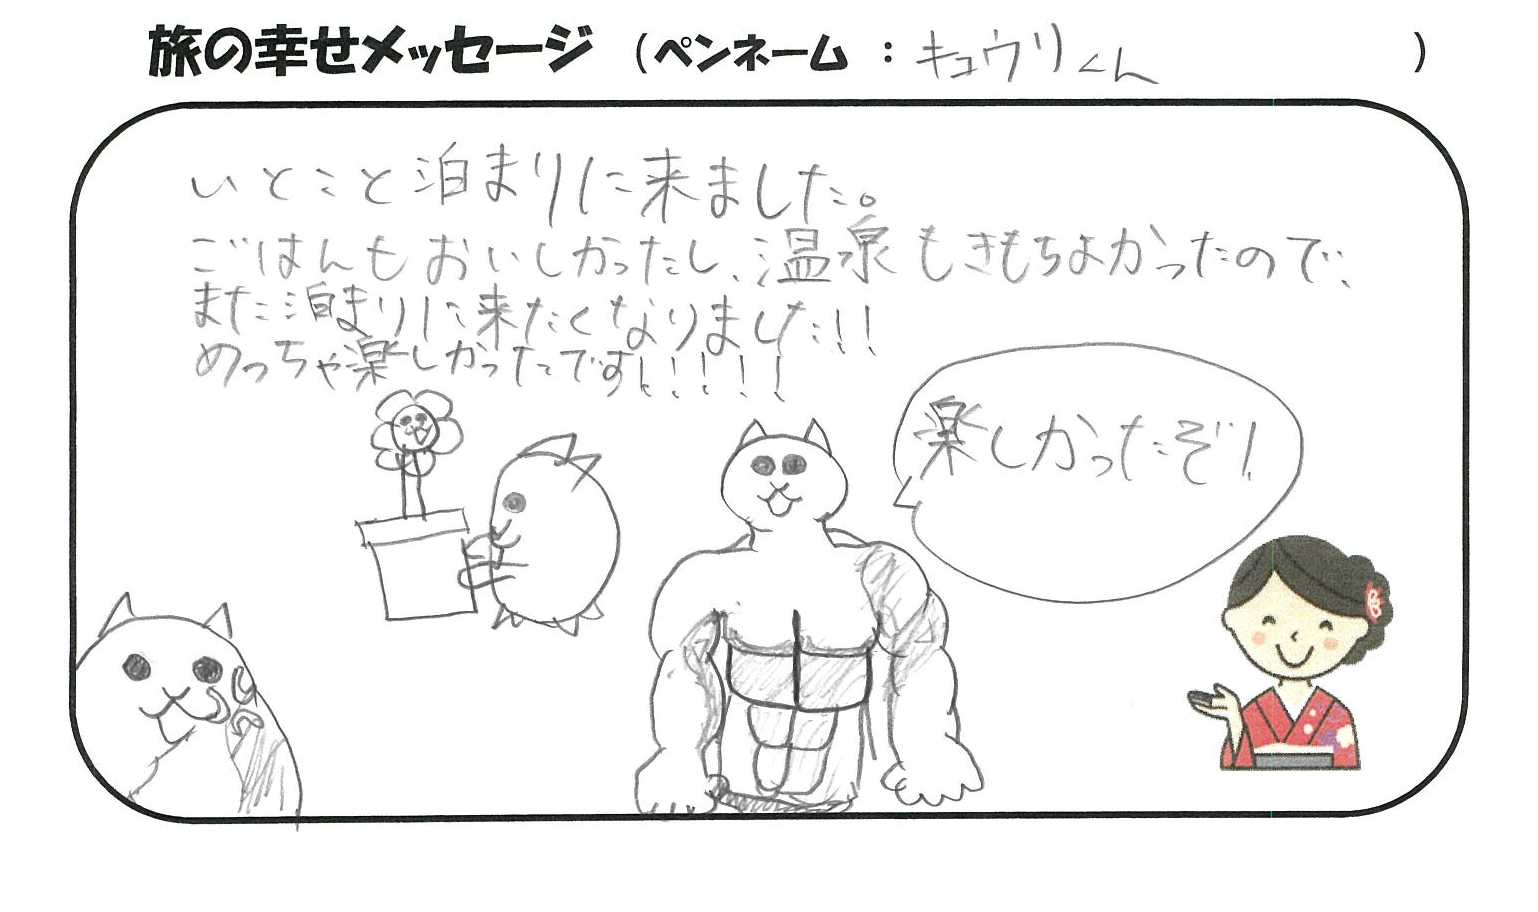 旅の幸せメッセージ (ペンネーム : キュウリくん )
いとこと泊まりに来ました。
ごはんもおいしかったし、温泉もきもちよかったので、
また泊まりに来たくなりました!!
めっちゃ楽しかったです!!!!!
楽しかったぞ!